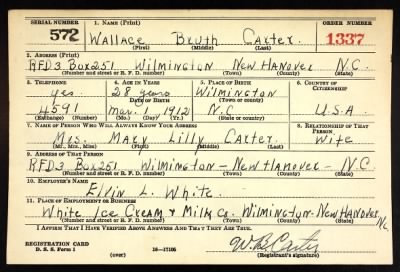 SERIAL NUMBER 1. NAME (Print) ORDER NUMBER
572 Wallace Bruth Carter 1337
(First) (Middle) (Last)
2. ADDRESS (Print)
RFD3 Box251 Wilmington New Hanover N.C.
(Number and street or R. F. D. number) (Town) (County) (State)
3. TELEPHONE 4. AGE IN YEARS 5. PLACE OF BIRTH 6. COUNTRY OF CITIZENSHIP
yes 28 years Wilmington
DATE OF BIRTH (Town or county)
4591 Mar. 1 1912 N.C U.S.A
(Exchange) (Number) (Mo.) (Day) (Yr.) (State or country)
7. NAME OF PERSON WHO WILL ALWAYS KNOW YOUR ADDRESS 8. RELATIONSHIP OF THAT PERSON
Mrs. Mary Lilly Carter. Wife
(Mr., Mrs., Miss) (First) (Middle) (Last)
9. ADDRESS OF THAT PERSON
RFD3 Box251 Wilmington - New Hanover - N.C
(Number and street or R. F. D. number) (Town) (County) (State)
10. EMPLOYER'S NAME
Elvin L. White
11. PLACE OF EMPLOYMENT OR BUSINESS
White Ice Cream & Milk Co. Wilmington-New Hanover N.C
(Number and street or R. F. D. number) (Town) (County) (State)
I AFFIRM THAT I HAVE VERIFIED ABOVE ANSWERS AND THAT THEY ARE TRUE.
REGISTRATION CARD
D. S. S. Form 1 (over) 16-17105 W B Carter
(Registrant's signature)